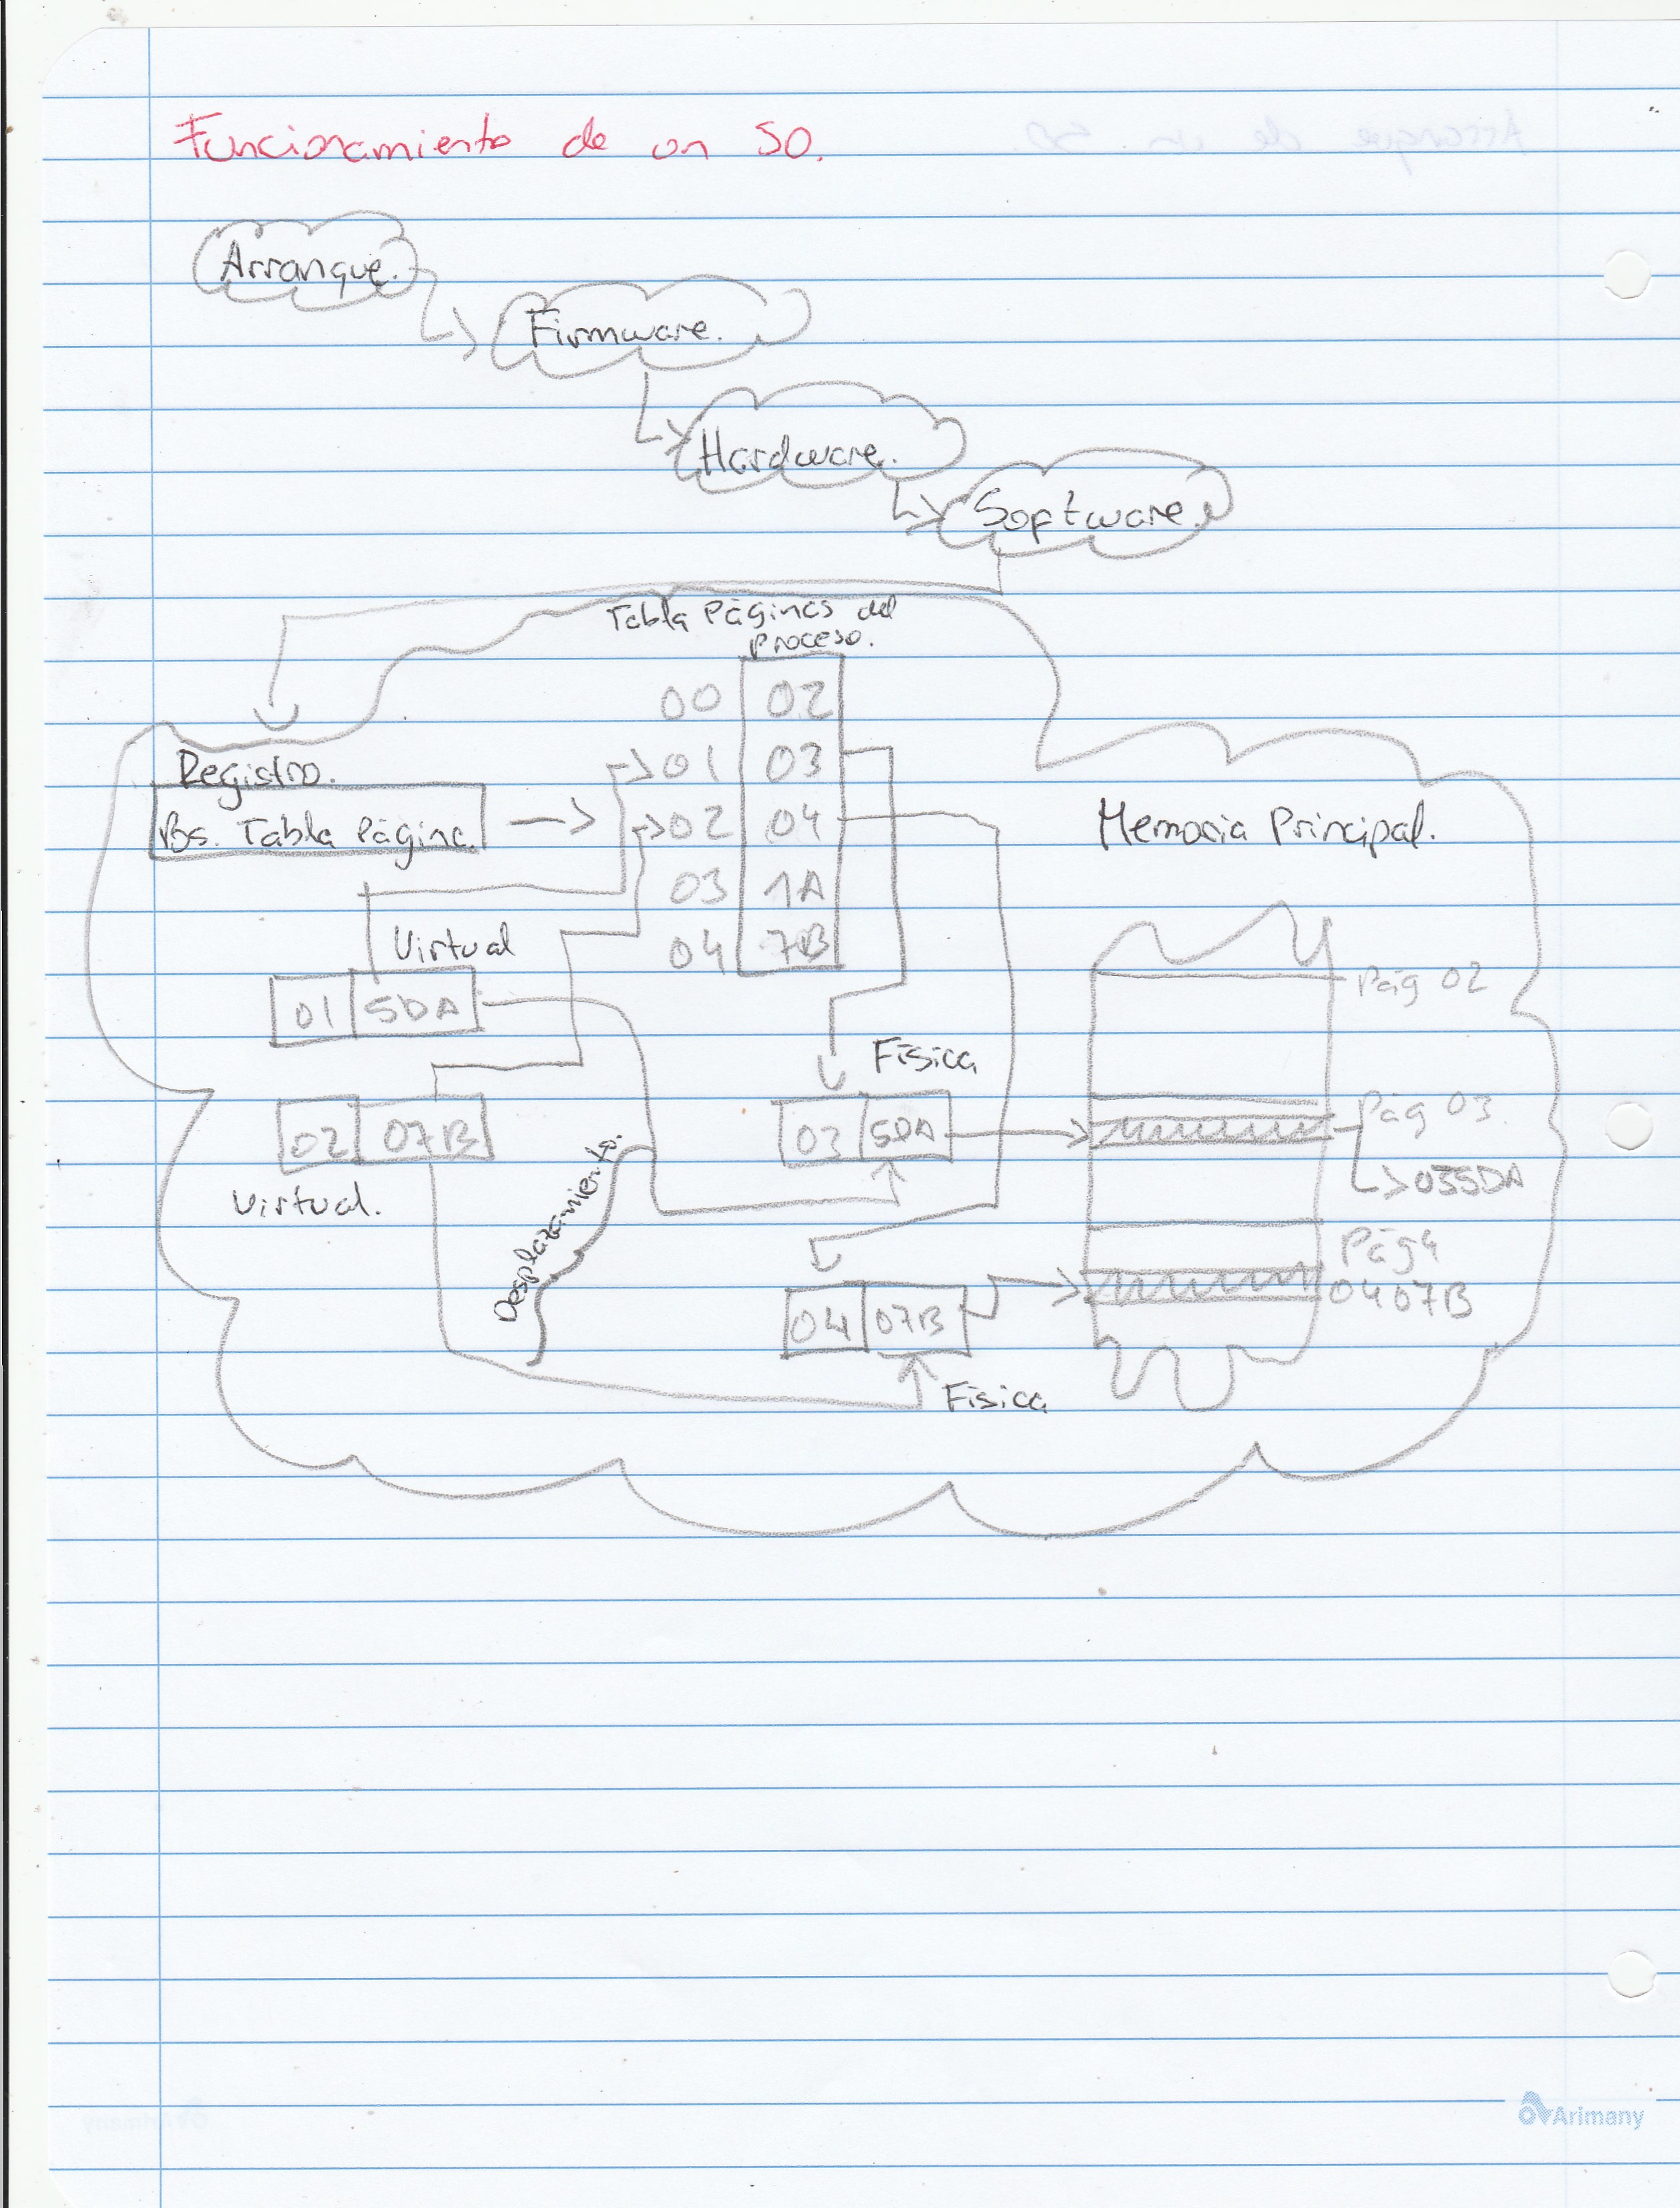 Funcionamiento de un SO.
Arranque.
Firmware.
Hardware.
Software.
Tabla Páginas del
Proceso.
00 02
01 03
02 04
03 1A
04 7B
Registro.
Bs. Tabla Página.
Memoria Principal.
Virtual
01 5DA
02 07B
Virtual.
Desplazamiento.
Física
03 5DA
04 07B
Física
Pág 02
Pág 03
035DA
Pág 4
0407B
Arimany